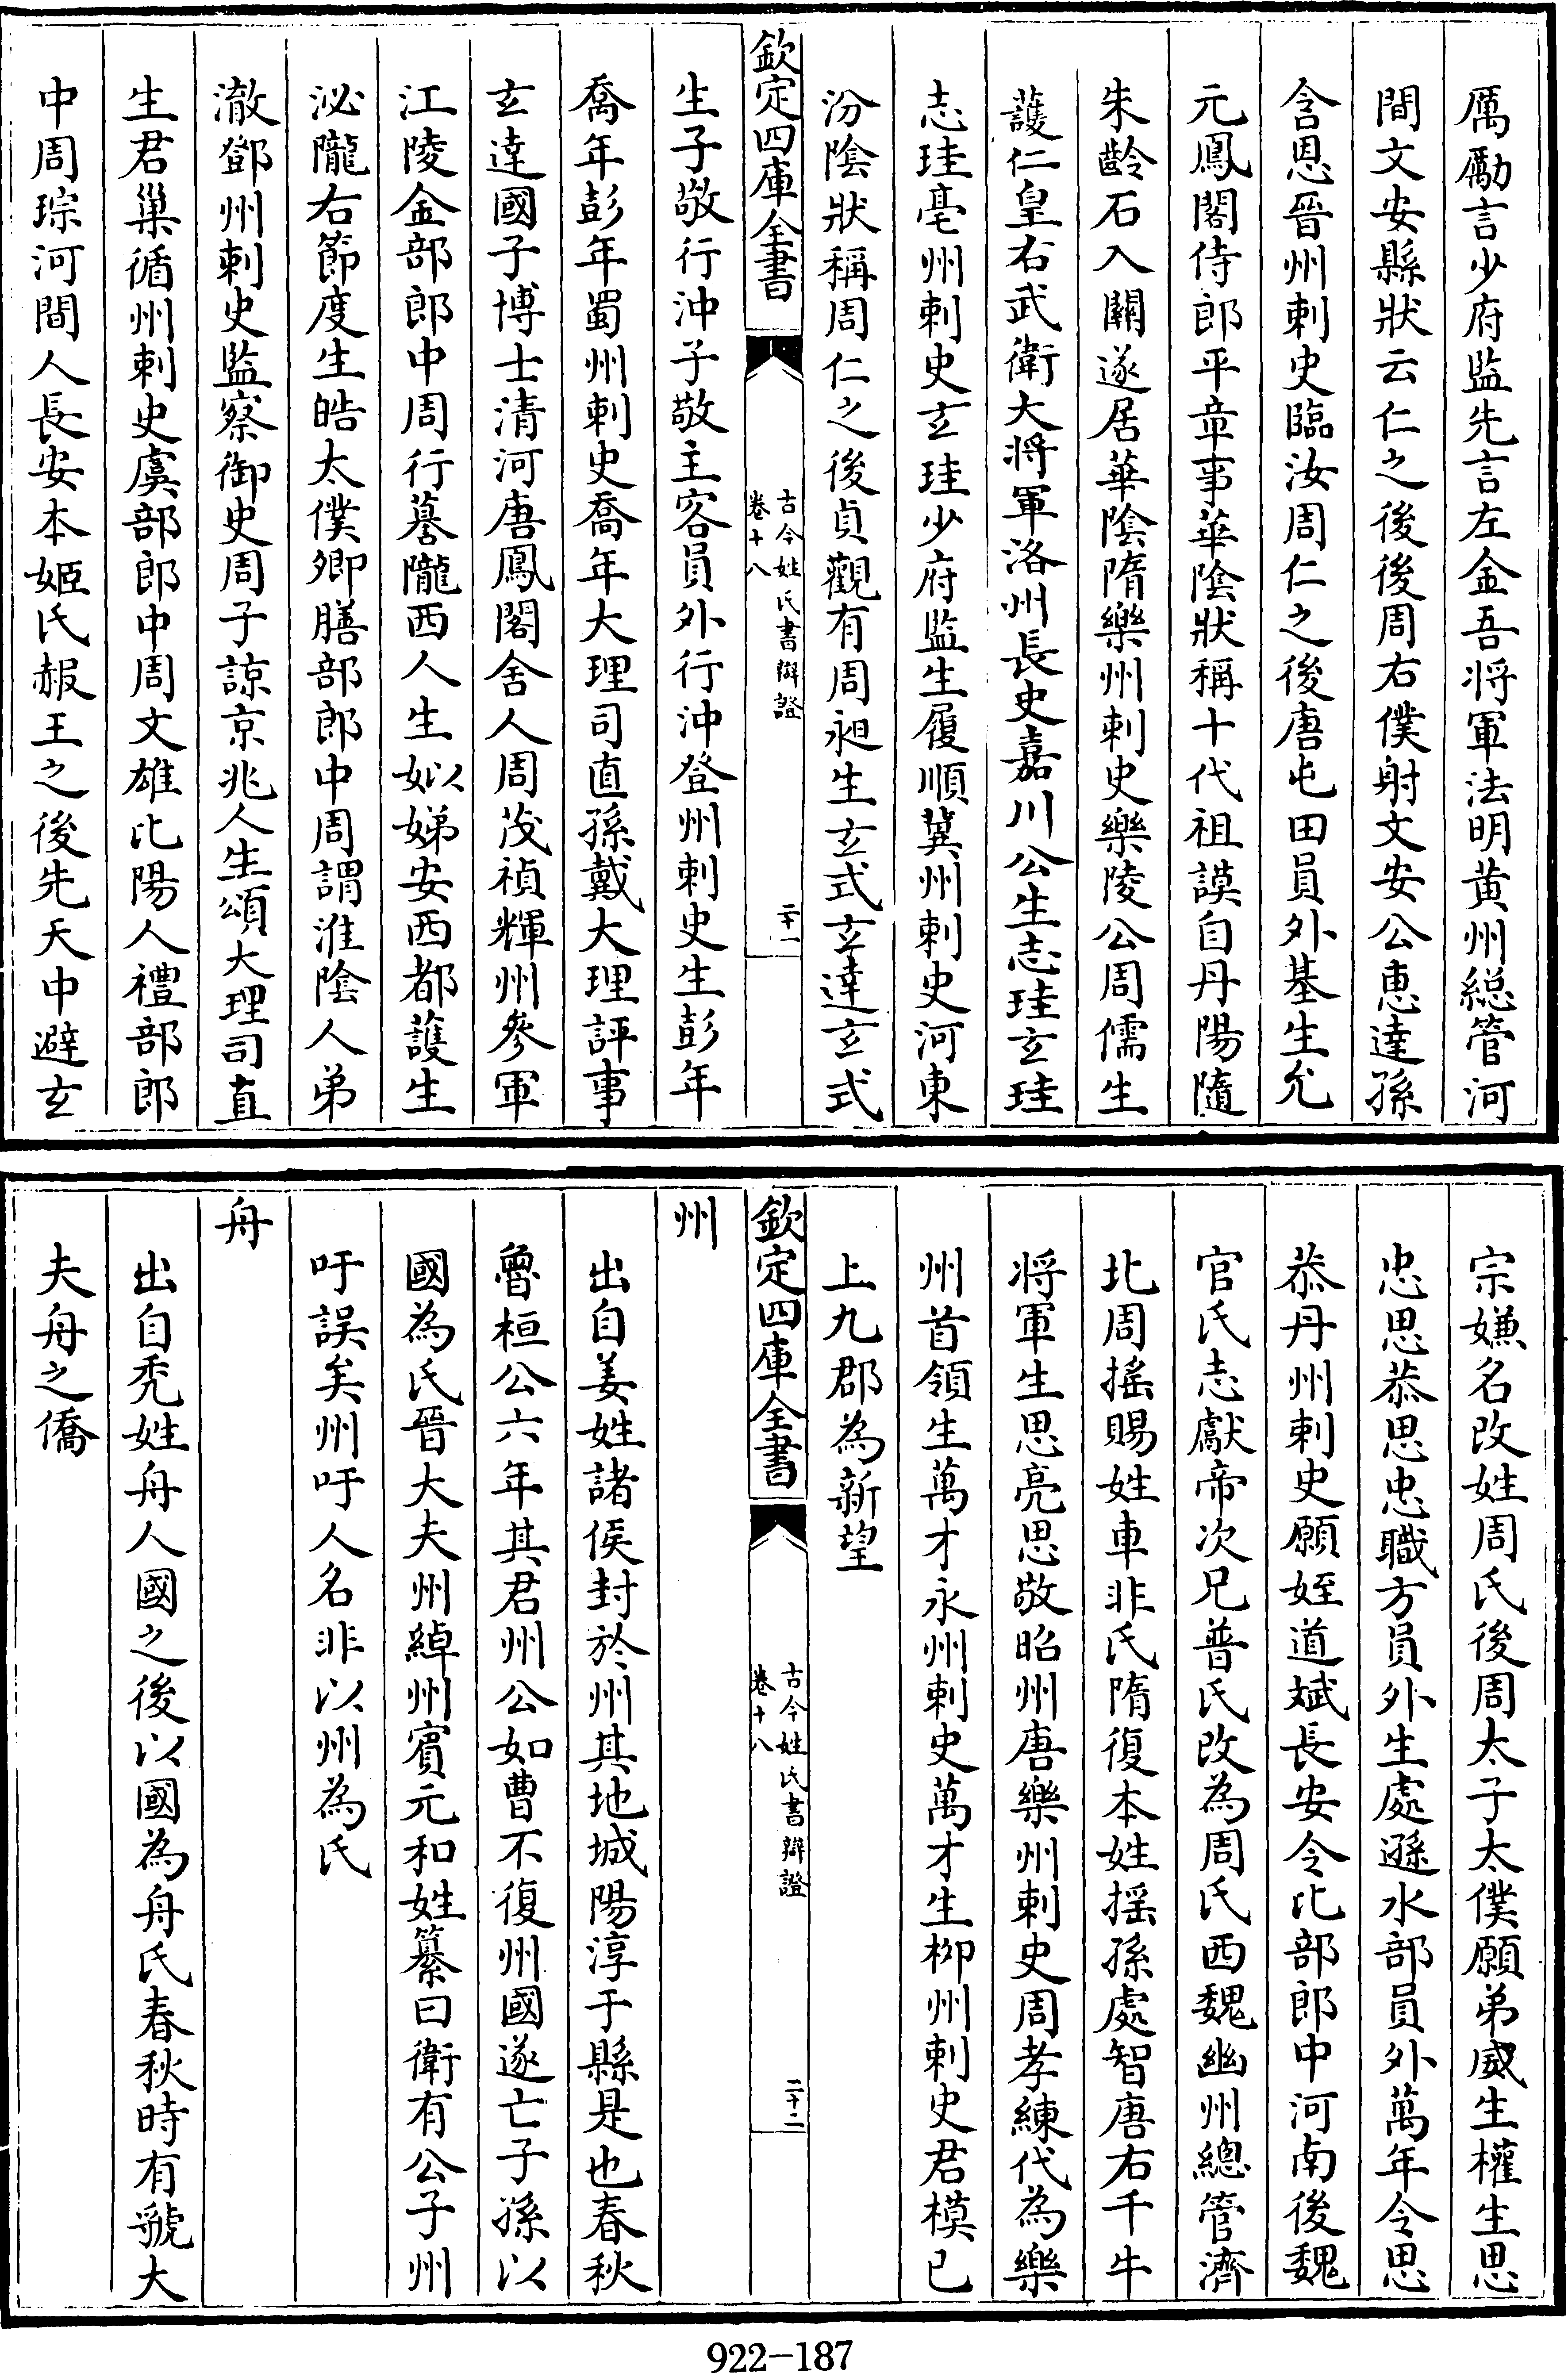 厲勵言少府監先言左金吾将軍法明黄州総管河
間文安縣狀云仁之後後周右僕射文安公惠達孫
含恩晉州刺史臨汝周仁之後唐屯田員外基生允
元鳳閣侍郎平章事華陰狀稱十代祖謨自丹陽隨
朱齡石入關遂居華陰隋樂州刺史樂陵公周儒生
護仁皇右武衛大将軍洛州長史嘉川公生志珪玄珪
志珪亳州刺史玄珪少府監生履順冀州刺史河東
汾陰狀稱周仁之後貞觀有周昶生玄式玄達玄式
欽定四庫全書
古今姓氏書辯證
卷十八
二十一
生子敬行沖子敬主客員外行沖登州刺史生彭年
喬年彭年蜀州刺史喬年大理司直孫戴大理評事
玄達國子博士清河唐鳳閣舍人周茂禎輝州參軍
江陵金部郎中周行謩隴西人生姒娣安西都護生
泌隴右節度生皓太僕卿膳部郎中周謂淮陰人弟
澈鄧州刺史監察御史周子諒京兆人生頌大理司直
生君巢循州刺史虞部郎中周文雄比陽人禮部郎
中周琮河間人長安本姬氏赧王之後先天中避玄
宗嫌名改姓周氏後周太子太僕願弟威生權生思
忠思恭思忠職方員外生處遜水部員外萬年令思
恭丹州刺史願姪道斌長安令比部郎中河南後魏
官氏志獻帝次兄普氏改為周氏西魏幽州總管濟
北周搖賜姓車非氏隋復本姓搖孫處智唐右千牛
将軍生思亮思敬昭州唐樂州刺史周孝練代為樂
州首領生萬才永州刺史萬才生柳州刺史君模已
上九郡為新望
欽定四庫全書
古今姓氏書辯證
卷十八
二十二
州
出自姜姓諸侯封於州其地城陽淳于縣是也春秋
魯桓公六年其君州公如曹不復州國遂亡子孫以
國為氏晉大夫州綽州賓元和姓纂曰衛有公子州
吁誤矣州吁人名非以州為氏
舟
出自秃姓舟人國之後以國為舟氏春秋時有虢大
夫舟之僑
922-187